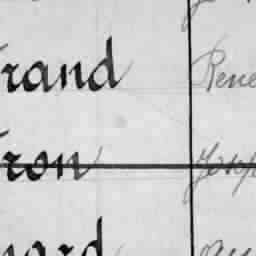 rand Rene
ron Josep
nard